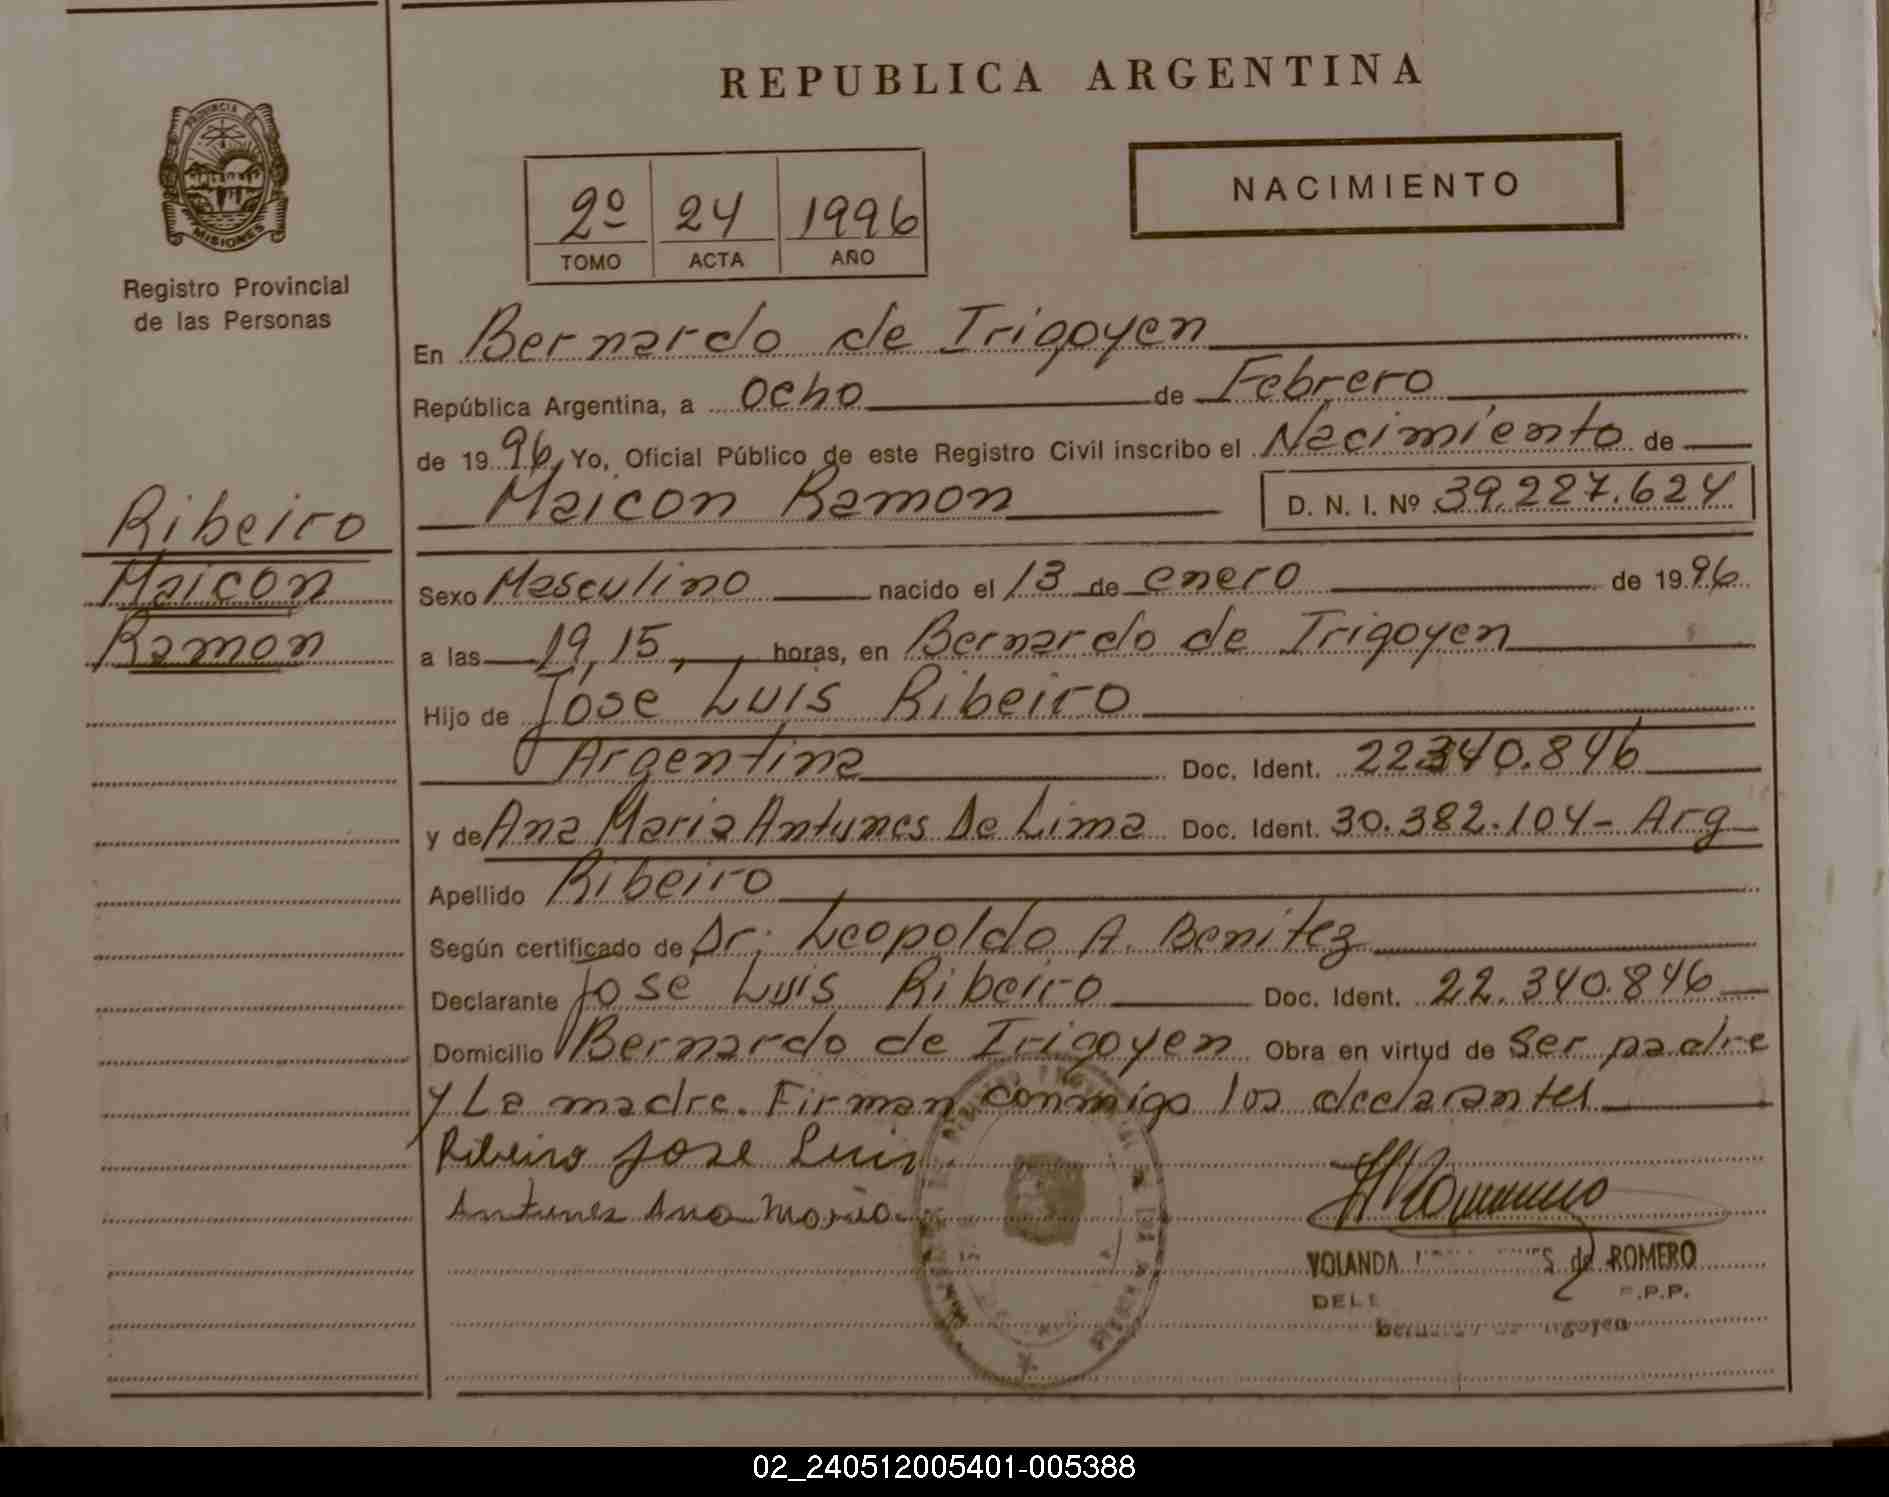 REPUBLICA ARGENTINA
PROVINCIA DE
MISIONES
Registro Provincial
de las Personas
NACIMIENTO
2º 24 1996
TOMO ACTA AÑO
En Bernardo de Irigoyen
República Argentina, a ocho de Febrero
de 1996, Yo, Oficial Público de este Registro Civil inscribo el Nacimiento de
Maicon Ramon D. N. I. Nº 39.227.624
Ribeiro
Maicon
Ramon
Sexo Masculino nacido el 13 de enero de 1996
a las 19,15, horas, en Bernardo de Irigoyen
Hijo de Jose Luis Ribeiro
Argentina Doc. Ident. 22.340.846
y de Ana Maria Antunes De Lima Doc. Ident. 30.382.104- Arg
Apellido Ribeiro
Según certificado de Dr. Leopoldo A. Benitez
Declarante Jose Luis Ribeiro Doc. Ident. 22.340.846
Domicilio Bernardo de Irigoyen Obra en virtud de Ser padre
y La madre. Firman conmigo los declarantes
Ribeiro Jose Luis
Antunes Ana Maria
YOLANDA de ROMERO
02_240512005401-005388